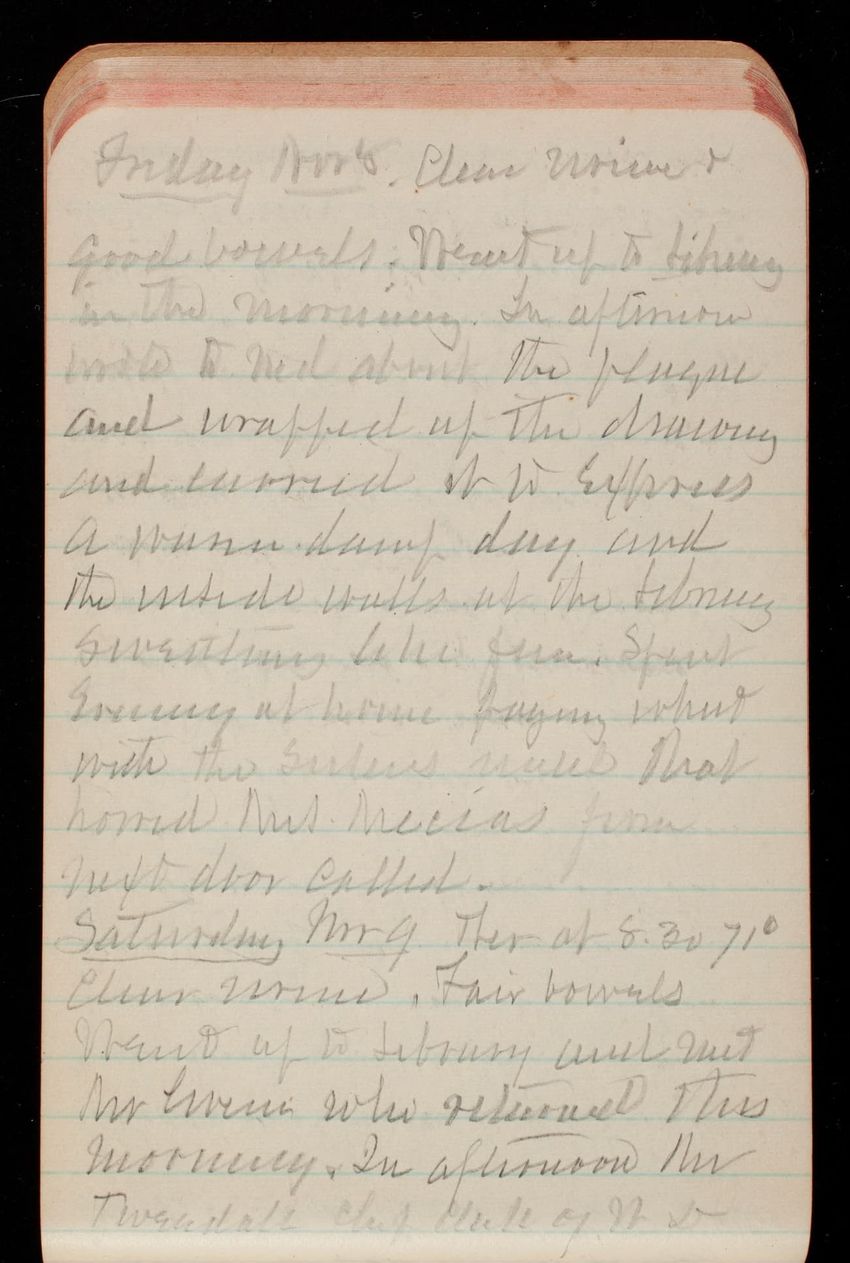 Friday Nov 8. Clear Urine &
good bowels. Went up to Library
in the morning. In afternoon
wrote to Ned about the plaque
and wrapped up the drawing
and carried it to Express
A warm damp day and
the inside walls at the Library
Sweating like fun. Spent
Evening at home playing whist
with the until that
Mrs. from
next door called.
Saturday Nov 9 Ther at 8.30 71°
Clear urine. Fair bowels
Went up to Library and met
Mr Green who returned this
morning. In afternoon Mr
Tweedale chf clerk of W D